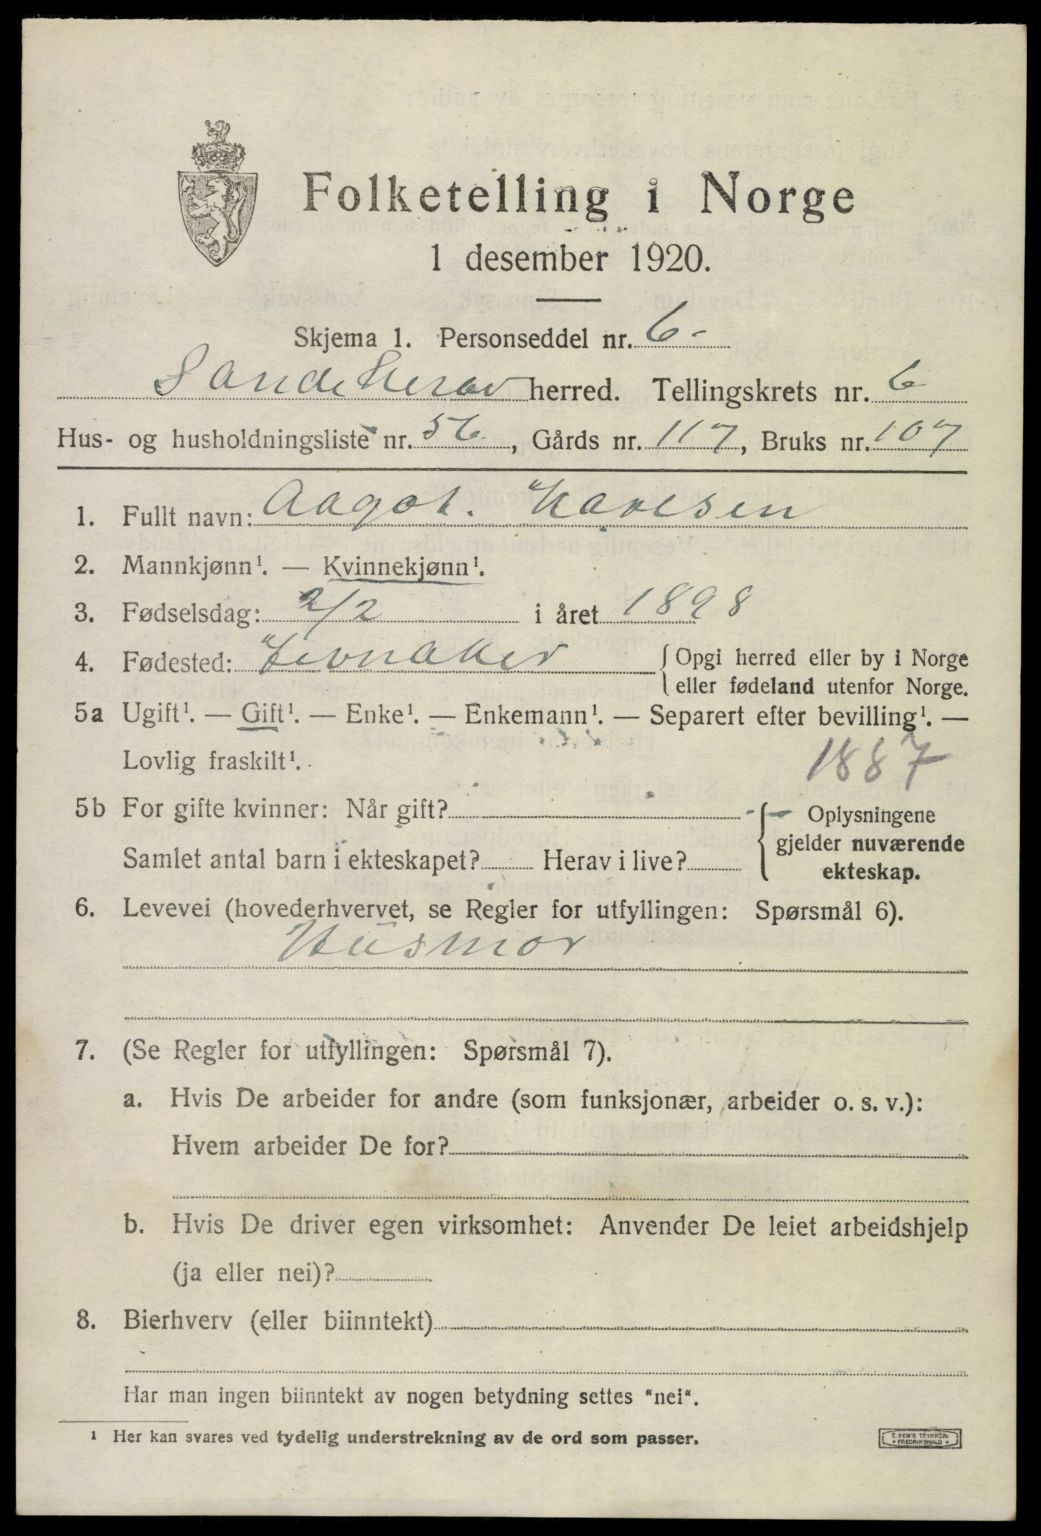 Folketelling i Norge
1 desember 1920.
Skjema 1. Personseddel nr. 6-
Sandeherav herred. Tellingskrets nr. 6
Hus- og husholdningsliste nr. 56, Gårds nr. 117, Bruks nr. 107
1. Fullt navn: Aagot. Karlsen
2. Mannkjønn¹. — Kvinnekjønn¹.
3. Fødselsdag: 2/2 i året 1898
4. Fødested: Jevnaker { Opgi herred eller by i Norge
eller fødeland utenfor Norge.
5a Ugift¹. — Gift¹. — Enke¹. — Enkemann¹. — Separert efter bevilling¹. —
Lovlig fraskilt¹. 1887
5b For gifte kvinner: Når gift? { Oplysningene
gjelder nuværende
Samlet antal barn i ekteskapet? Herav i live? ekteskap.
6. Levevei (hovederhvervet, se Regler for utfyllingen: Spørsmål 6).
Husmor
7. (Se Regler for utfyllingen: Spørsmål 7).
a. Hvis De arbeider for andre (som funksjonær, arbeider o. s. v.):
Hvem arbeider De for?
b. Hvis De driver egen virksomhet: Anvender De leiet arbeidshjelp
(ja eller nei)?
8. Bierhverv (eller biinntekt)
Har man ingen biinntekt av nogen betydning settes "nei".
¹ Her kan svares ved tydelig understrekning av de ord som passer.